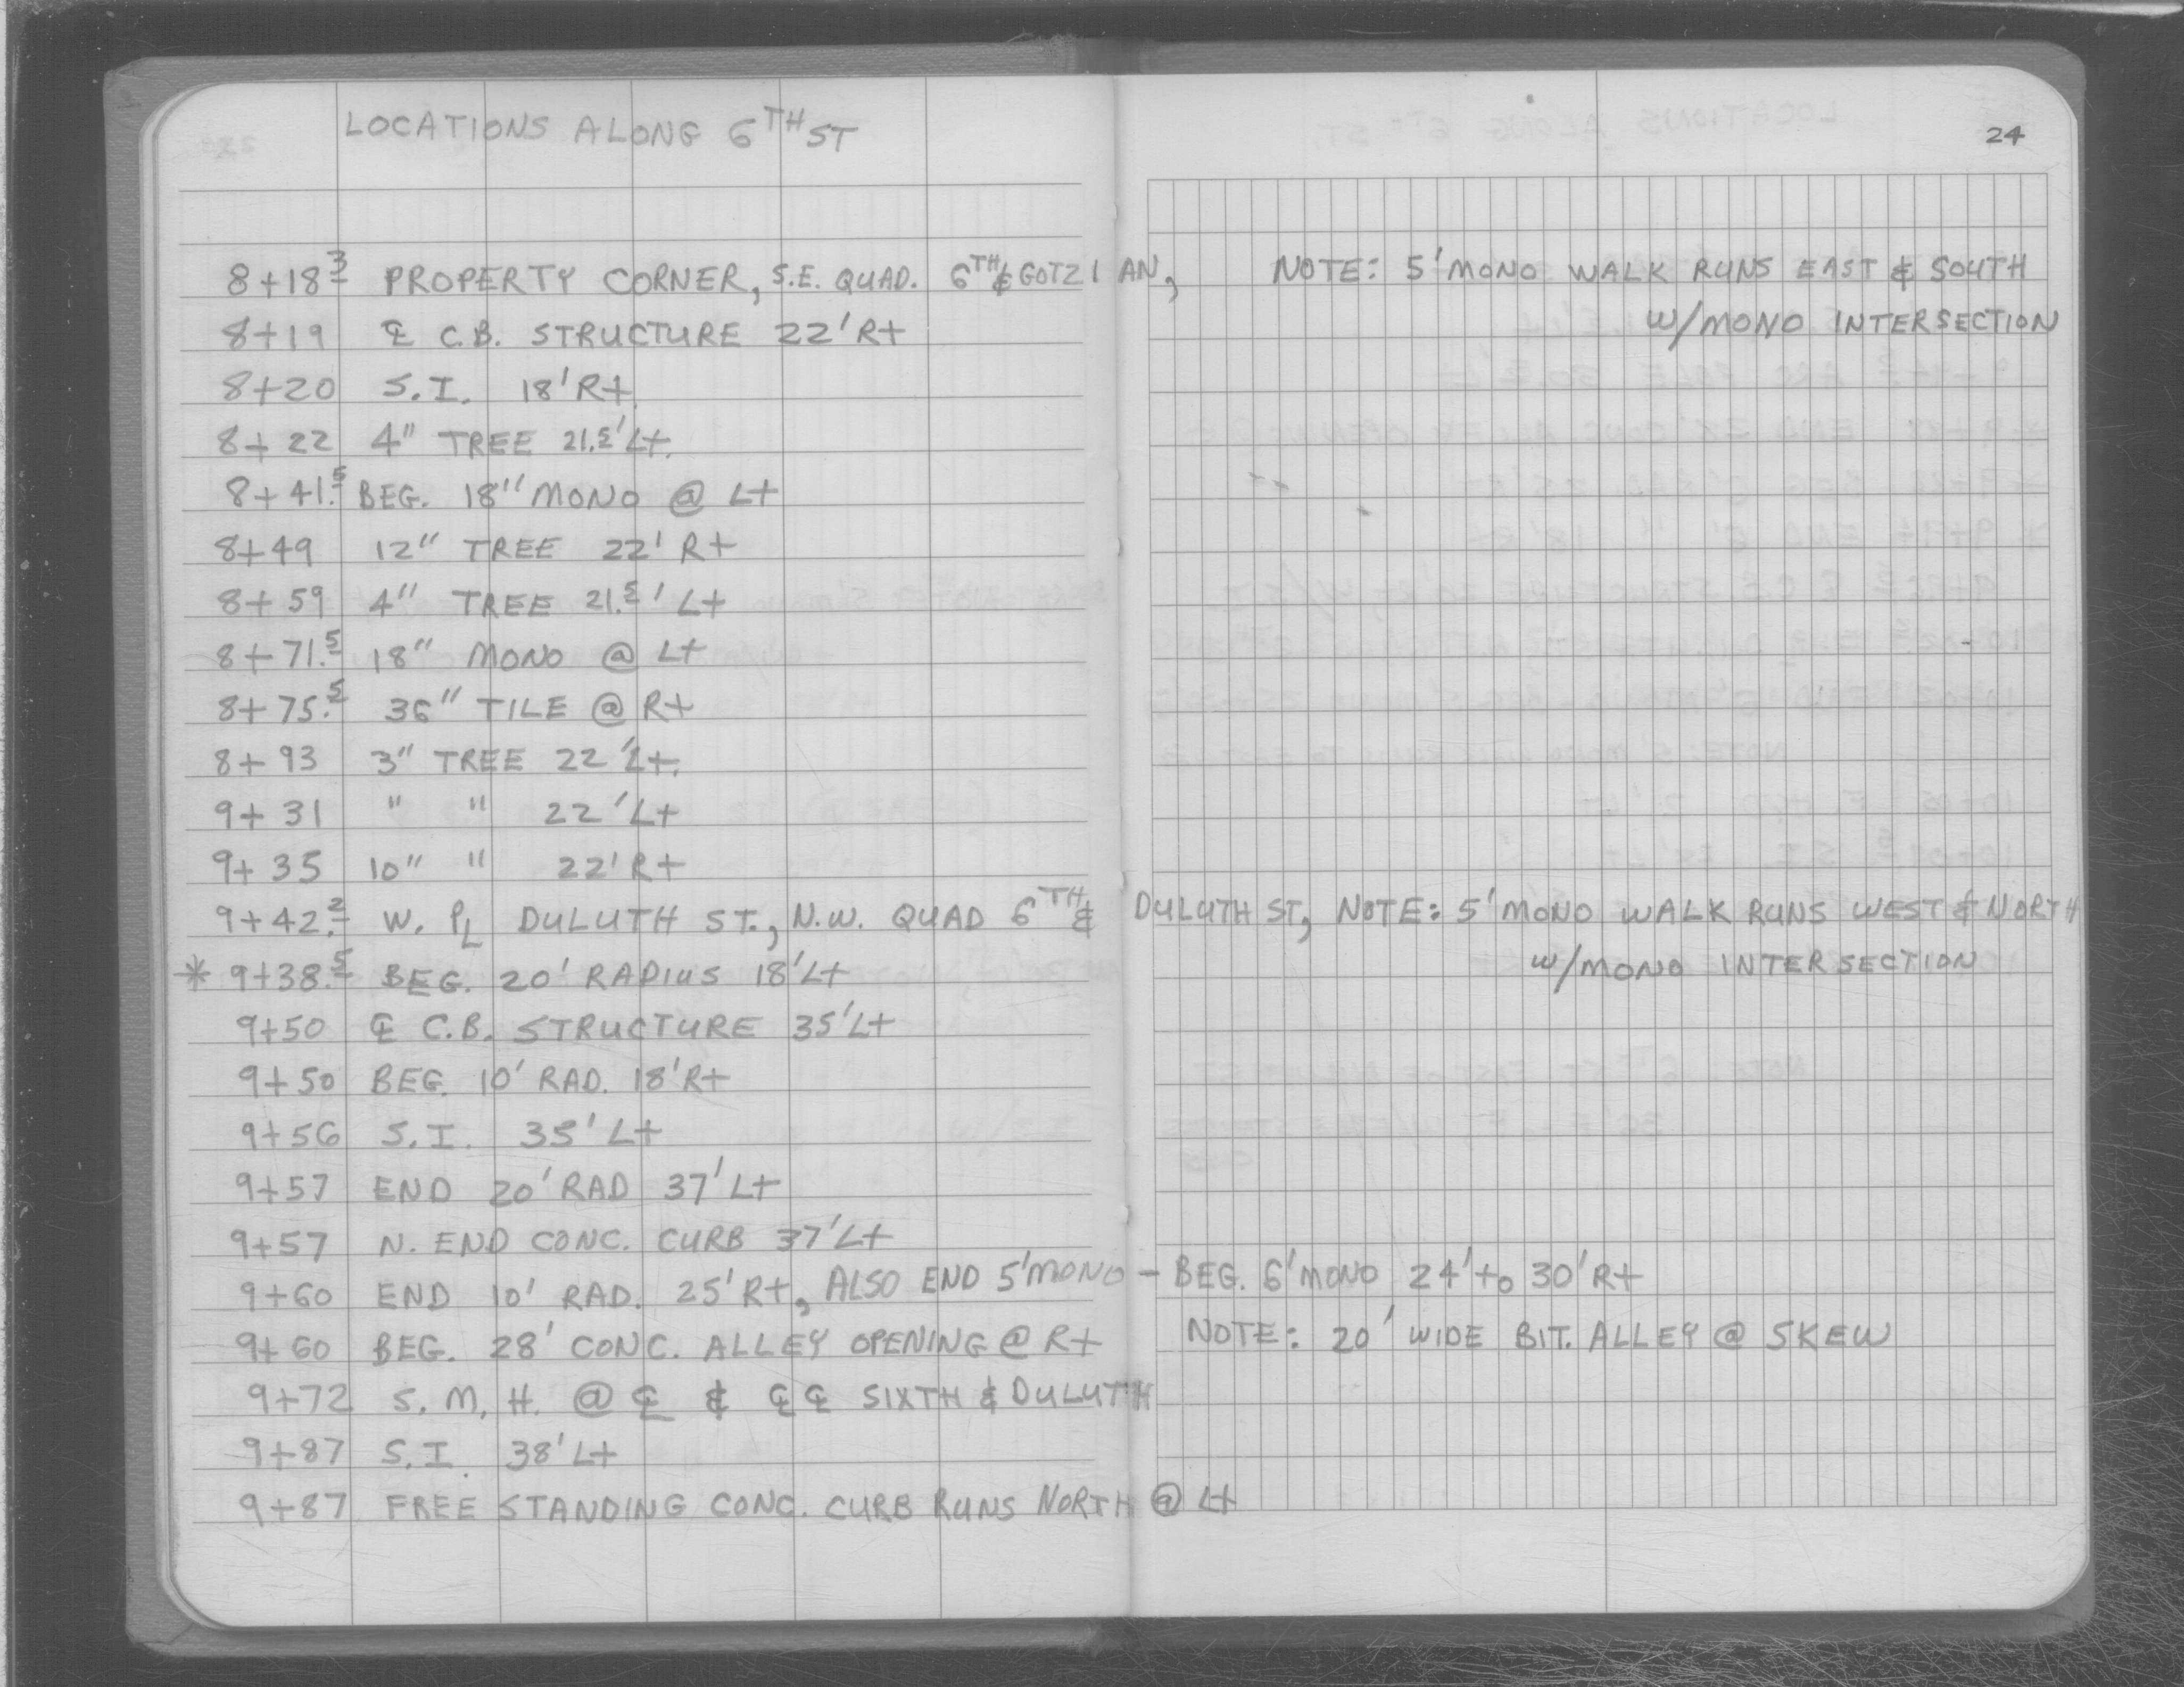 LOCATIONS ALONG 6TH ST
24
8+18.3 PROPERTY CORNER, S.E. QUAD. 6TH & GOTZIAN, NOTE: 5' MONO WALK RUNS EAST & SOUTH
w/MONO INTERSECTION
8+19 ℄ C.B. STRUCTURE 22' Rt
8+20 S.I. 18' Rt
8+22 4" TREE 21.5' Lt.
8+41.5 BEG. 18" MONO @ Lt
8+49 12" TREE 22' Rt
8+59 4" TREE 21.5' Lt
8+71.5 18" MONO @ Lt
8+75.5 36" TILE @ Rt
8+93 3" TREE 22' Lt.
9+31 " " 22' Lt
9+35 10" " 22' Rt
9+42.2 W. PL DULUTH ST., N.W. QUAD 6TH & DULUTH ST, NOTE: 5' MONO WALK RUNS WEST & NORTH
w/MONO INTERSECTION
* 9+38.5 BEG. 20' RADIUS 18' Lt
9+50 ℄ C.B. STRUCTURE 35' Lt
9+50 BEG. 10' RAD. 18' Rt
9+56 S.I. 35' Lt
9+57 END 20' RAD 37' Lt
9+57 N. END CONC. CURB 37' Lt
9+60 END 10' RAD. 25' Rt, ALSO END 5' MONO - BEG. 6' MONO 24' to 30' Rt
9+60 BEG. 28' CONC. ALLEY OPENING @ Rt NOTE: 20' WIDE BIT. ALLEY @ SKEW
9+72 S.M.H. @ ℄ & ℄℄ SIXTH & DULUTH
9+87 S.I. 38' Lt
9+87 FREE STANDING CONC. CURB RUNS NORTH @ Lt